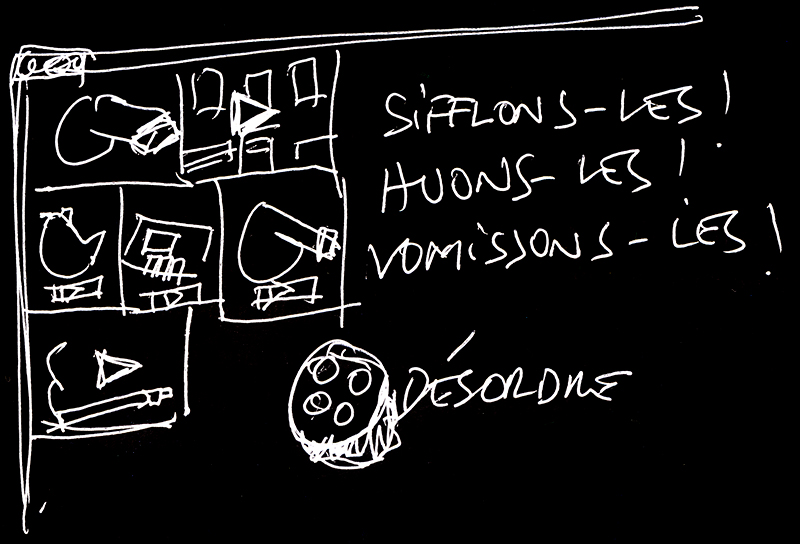 SIFFLONS-LES !
HUONS-LES !
VOMISSONS-LES !
DÉSORDRE